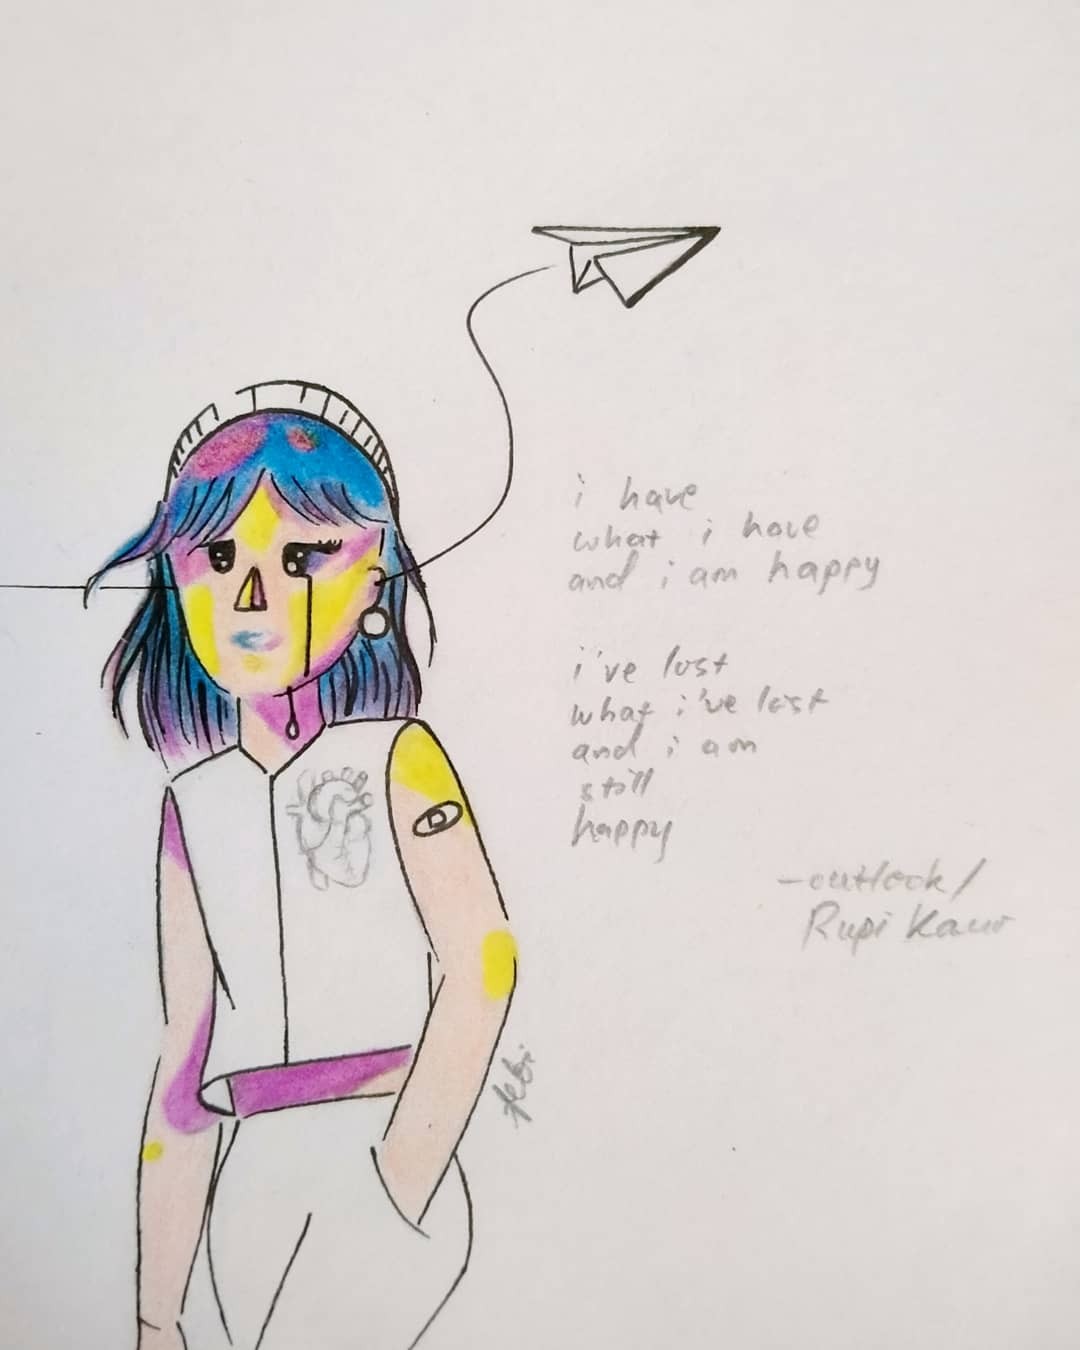 i have
what i have
and i am happy
i've lost
what i've lost
and i am
still
happy
-outlook/
Rupi Kaur
febi